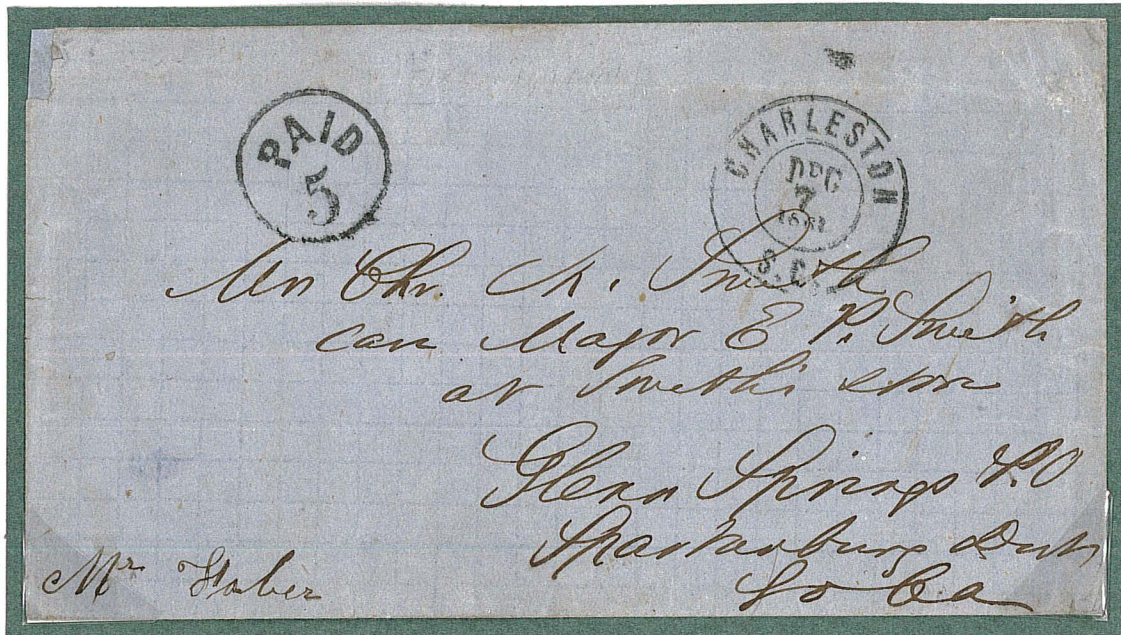 PAID
5
CHARLESTON
DEC
7
1861
S.C.
Chr. M. Smith
care Major E P. Smith
at Smith's store
Glenn Springs P.O
Spartanburg Dist
So Ca
Mr Faber